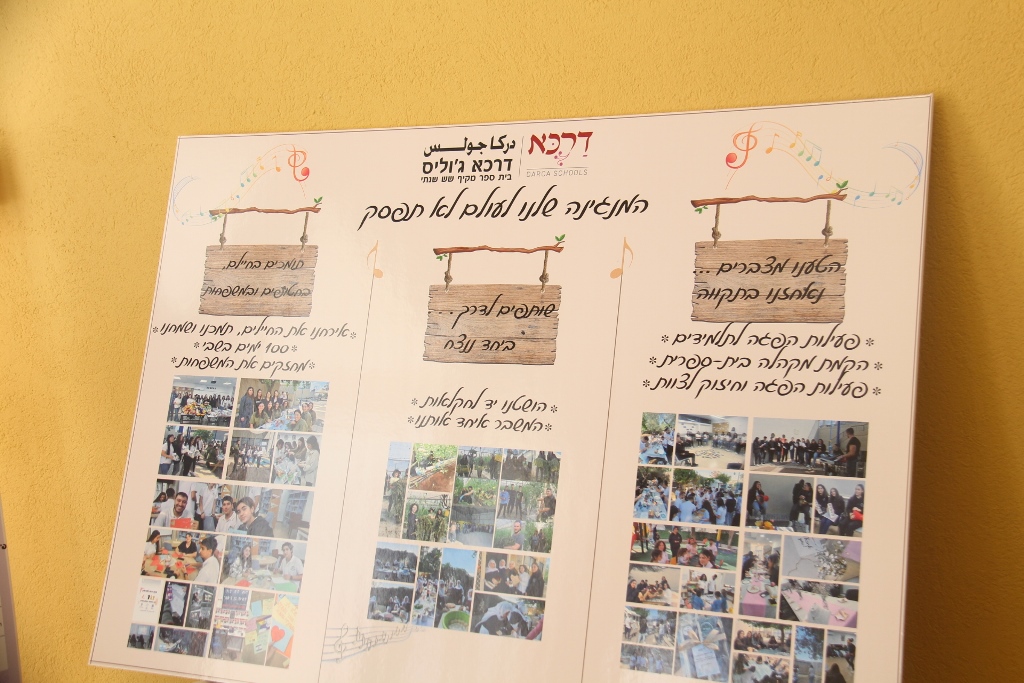 دركا جولس
דרכא ג'וליס
בית ספר מקיף שש שנתי
דַרְכָּא
DARCA SCHOOLS
המנגינה שלנו לעולם לא תפסק
הטענו מצברים ...
ונאחזנו בתקווה
*פעילות הפגה לתלמידים*
*הקמת מקהלה בית-ספרית*
*פעילות הפגה וחיזוק לצוות*
שותפים לדרך ...
ביחד ננצח
*הושטנו יד לחקלאות*
*המשבר איחד אותנו*
תומכים בחיילים,
בחטופים ובמשפחות
*אירחנו את החיילים, תמכנו ושמחנו*
*100 ימים בשבי*
*מחזקים את המשפחות*